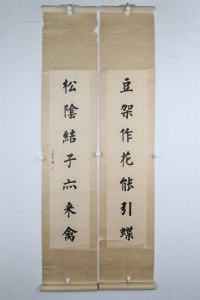 豆架作花能引蝶
松陰結子亦来禽